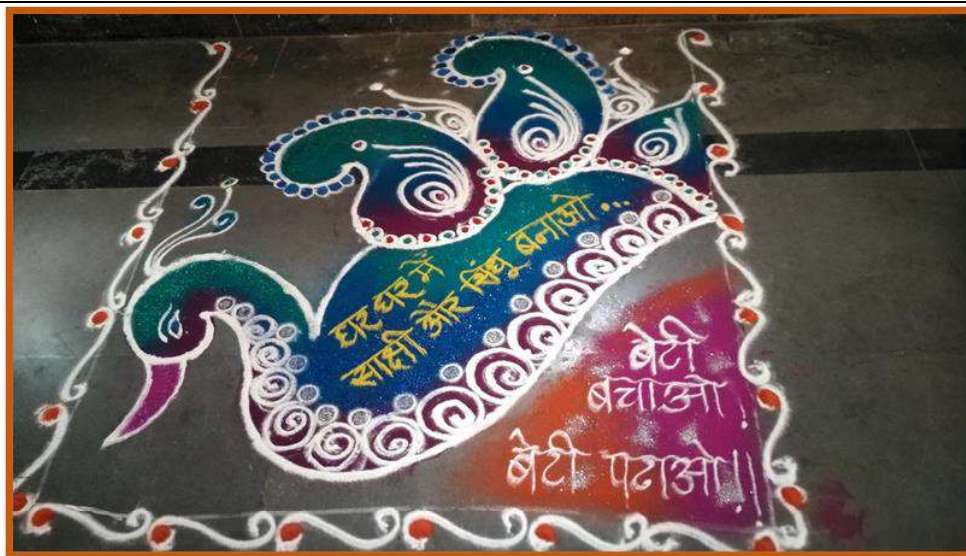 घर घर में
साक्षी और सिंधू बनाओ...
बेटी
बचाओ!
बेटी पढाओ!!